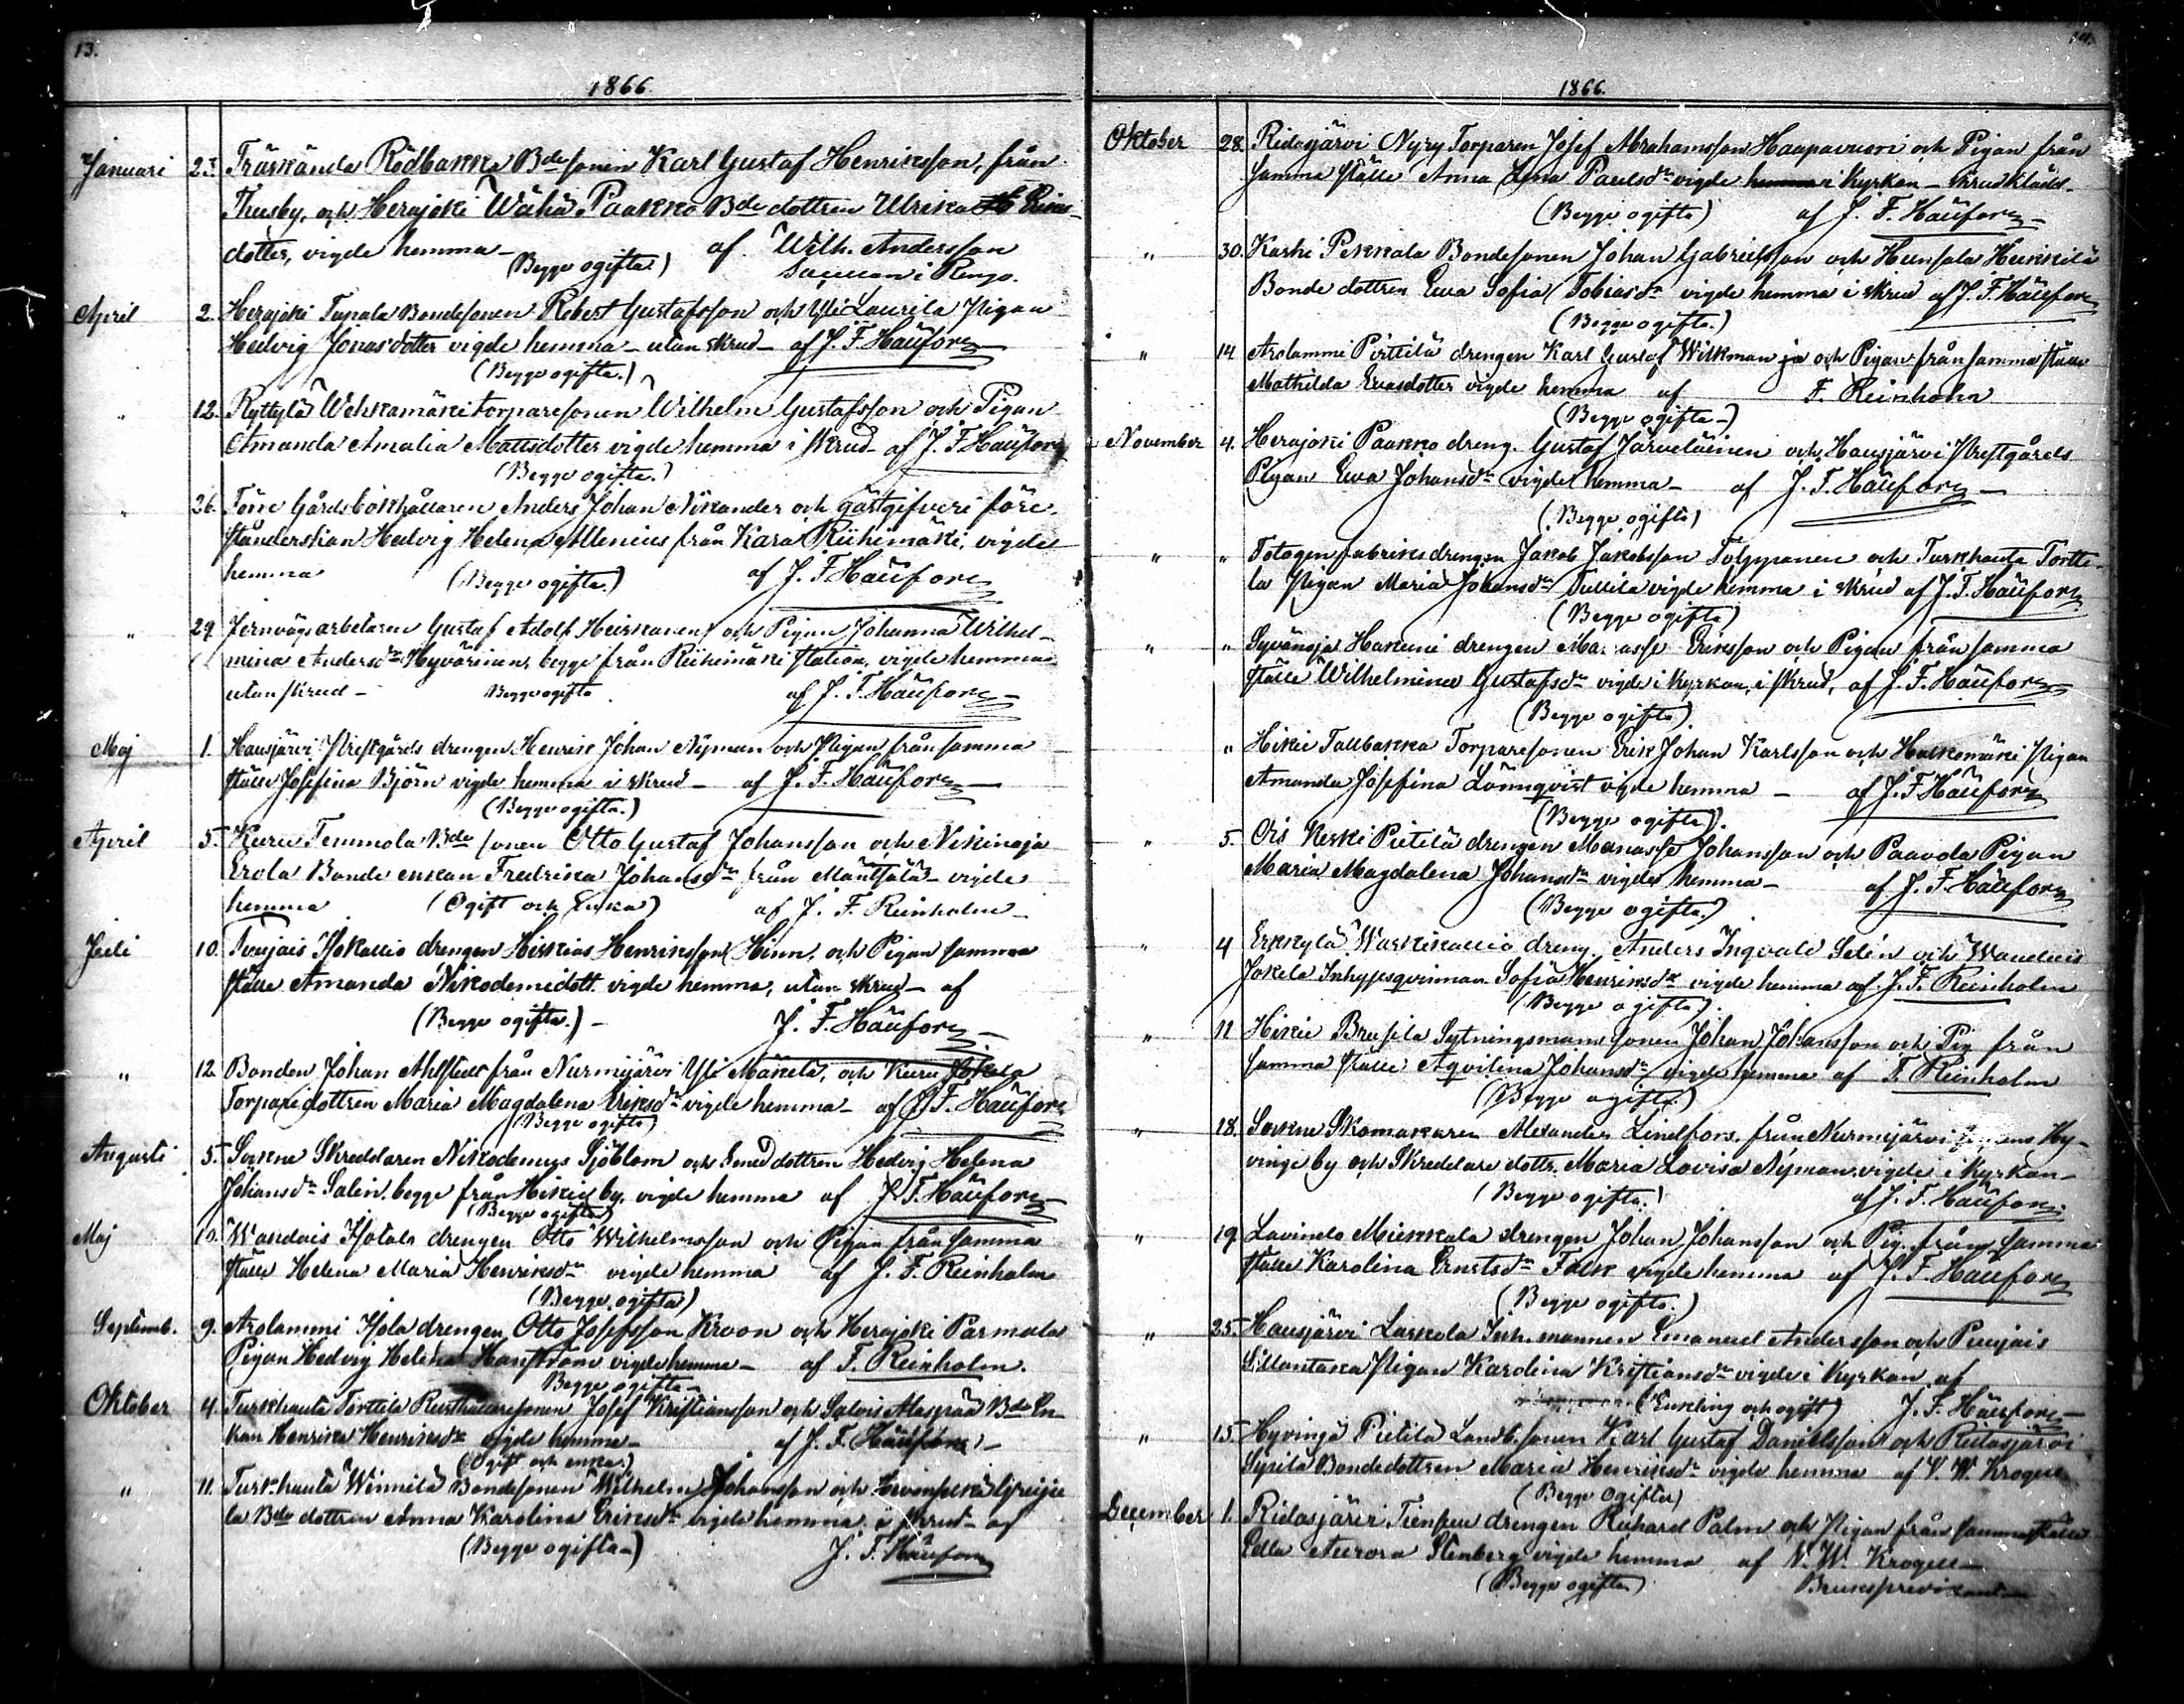 13.
1866
Januari 23. Träskända Rödbakka Bde sonen Karl Gustaf Henriksson, från
Thusby, och Herajoki Wähä Paakko Bde dottren Ulrika Eriks-
dotter, vigde hemma – af Wilh. Andersson
(Begge ogifta.) Sacellan i Rengo.
April 2. Herajoki Tapala Bondesonen Robert Gustafsson och Yli Laurila Pigan
Hedvig Jonasdotter vigde hemma – utan skrud – af J. F. Häüfors
(Begge ogifta.)
" 12. Ryttylä Wehkamäki torparesonen Wilhelm Gustafsson och Pigan
Amanda Amalia Mattsdotter vigde hemma i skrud – af J. F. Häüfors
(Begge ogifta.)
" 26. Gårdsbokhållaren Anders Johan Nikander och gästgifveri före-
ståndersskan Hedvig Helena Allenius från Kara Riihimäki, vigde
hemma (Begge ogifta.) af J. F. Häüfors
" 29 Jernvägsarbetaren Gustaf Adolf Heiskanen och Pigan Johanna Wilhel-
mina Andersdr Hyvärinen, begge från Riihimäki station, vigde hemma
utan skrud – Begge ogifta af J. F. Häüfors –
Maj 1. Hausjärvi Prestgårds drengen Henrik Johan Nyman och Pigan från samma
ställe Josefina Björn vigde hemma i skrud – af J. F. Häüfors –
(Begge ogifta.)
April 5. Kuru Temmola Bde sonen Otto Gustaf Johansson och Nikinoja
Erola Bonde enkan Fredrika Johansdr från Mäntsälä – vigde
hemma (Ogift och Enka) af J. F. Reinholm –
Juli 10. Isokallio drengen Hiskias Henriksson Hinn, och Pigan samma
ställe Amanda Nikodemidott. vigde hemma, utan skrud – af
(Begge ogifta.) – J. F. Häüfors –
" 12. Bonden Johan Ahlstedt från Nurmijärvi Yli Märkilä, och Kuru Jokela
Torparedottren Maria Magdalena Eriksdr vigde hemma – af J. F. Häüfors
(Begge ogifta)
Augusti 5. Sockne Skreddaren Nikodemus Sjöblom och Smed dottren Hedvig Helena
Johansdr Salin, begge från Hikiä by, vigde hemma af J. F. Häüfors –
(Begge ogifta)
Maj 10. Wantais Isotalo drengen Otto Wilhelmsson och Pigan från samma
ställe Helena Maria Henriksdr vigde hemma af J. F. Reinholm
(Begge ogifta)
Septemb. 9. Arolammi Isola drengen Otto Josefsson Kroon och Herajoki Parmala
Pigan Hedvig Helena Hanström vigde hemma – af F. Reinholm.
Begge ogifta –
Oktober 4. Turkhauta Torttila Rusthållaresonen Josef Kristiansson och Salois Alaspää Bde En-
kan Henrika Henriksdr vigde hemma – af J. F. Häüfors –
(Ogift och enka.)
" 11. Turkhauta Winnilä Bondesonen Wilhelm Johansson och
la Bde dottren Anna Karolina Eriksdr vigde hemma i skrud – af
(Begge ogifta –) J. F. Häüfors
14.
1866.
Oktober 28. Ridasjärvi Nyry Torparen Josef Abrahamsson Haapavuori och Pigan från
samma ställe Anna Lena Paulsdr vigde i Kyrkan – skrudklädd.
(Begge ogifta) af J. F. Häüfors –
" 30. Karhi Pekkala Bondesonen Johan Gabrielsson och Hunsala Heikkilä
Bonde dottren Eva Sofia Tobiasdr vigde hemma i skrud af J. F. Häüfors
(Begge ogifta.)
" 14 Arolammi Pirttilä drengen Karl Gustaf Wilkman och Pigan från samma ställe
Mathilda Evasdotter vigde hemma af F. Reinholm
(Begge ogifta –)
November 4. Herajoki Paakko dreng. Gustaf Järveläinen och Hausjärvi Prestgårds
Pigan Eva Johansdr vigde hemma – af J. F. Häüfors –
(Begge ogifta)
" " Fotogenfabriksdrengen Jakob Jakobsson Tolppanen och Turkhauta Tortti-
la Pigan Maria Johansdr Tullila vigde hemma i skrud af J. F. Häüfors
(Begge ogifta)
" " Syvänoja Hakuni drengen Manasse Eriksson och Pigan från samma
ställe Wilhelmina Gustafsdr vigde i Kyrkan, i skrud, af J. F. Häüfors
(Begge ogifta)
" Hikiä Tallbakka Torparesonen Erik Johan Karlsson och Halkomäki Pigan
Amanda Josefina Lönnqvist vigde hemma – af J. F. Häüfors
(Begge ogifta).
" 5. Ois Keski Pietilä drengen Manasse Johansson och Paavola Pigan
Maria Magdalena Johansdr vigde hemma – af J. F. Häüfors
(Begge ogifta.)
" 4 Erkkylä Warkikallio dreng. Anders Ingvald Selin och
Jokela Inhysesqvinnan Sofia Henriksdr vigde hemma af J. F. Reinholm
(Begge ogifta).
" 11 Hikiä Brusila Sytningsmans sonen Johan Johansson och Pig från
samma ställe Aqvilina Johansdr vigde hemma af F. Reinholm
(Begge ogifta)
" 18. Sockne Skomakaren Alexander Lindfors från Nurmijärvi Hy-
vinge by och Skreddare dottr. Maria Lovisa Nyman vigde i Kyrkan –
(Begge ogifta.) af J. F. Häüfors.
" 19 Lavinto Miekkala drengen Johan Johansson och Pig. från samma
ställe Karolina Ernstsdr Falk vigde hemma af J. F. Häüfors
(Begge ogifta.)
" 25. Hausjärvi Laskola Inh. mannen Emanuel Andersson och Puujais
Sillantaka Pigan Karolina Kristiansdr vigde i Kyrkan af
(Enkling och ogift) J. F. Häüfors –
" 15. Hyvingä Pietilä Landb. sonen Karl Gustaf Danielsson och Ridasjärvi
Syrilä Bondedottren Maria Henriksdr vigde hemma af V. W. Krogell
(Begge ogifta)
December 1. Ridasjärvi Tiensuu drengen Richard Palm och Pigan från samma ställe
Edla Aurora Stenberg vigde hemma af V. W. Krogell –
(Begge ogifta) Brukspredikant –